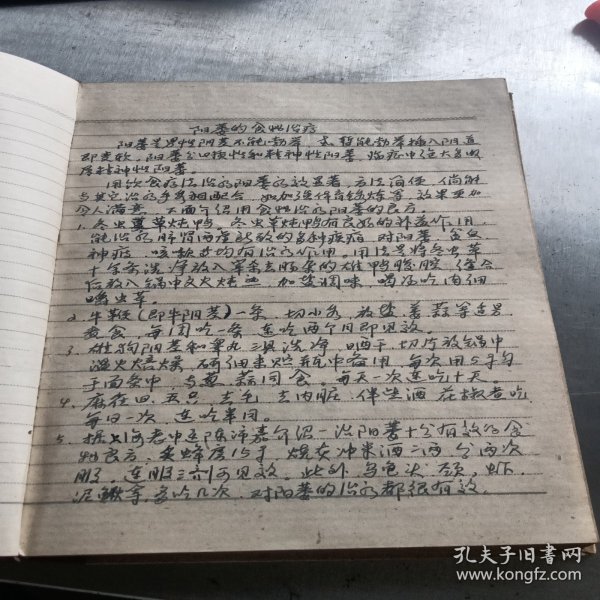 阳萎的食物治疗
阳萎是男性阴茎不能勃举,或暂能勃举插入阴道
即变软,阳萎分口按性和精神性阳萎,临症中绝大多数
属精神性阳萎。
用饮食疗法治疗阳萎疗效显著,方法简便,倘能
与其它治疗手段相配合,如加强体育锻炼等,效果更加
令人满意,下面介绍用食物治疗阳萎的良方
1. 冬虫夏草炖鸭。冬虫草炖鸭有良好的补益作用
能治疗肺肾两虚所致的多种疾病,对阳萎、贫血
神疲、咳嗽均有治疗作用。用法是将冬虫草
十余条洗净放入宰杀去肠杂的雄鸭腹腔,缝合
后放入锅中文火炖,加盐调味,喝汤吃肉细
嚼虫草。
2. 牛鞭(即牛阴茎)一条,切小段,放盐、姜蒜等适量
煮食,每周吃一条,连吃两个月即见效。
3. 雄狗阴茎和睾丸三具洗净,晒干,切片放锅中
温火焙燥,研细末贮瓶中备用,每次用
于面条中,与葱、蒜同食。每天一次连吃十天。
4. 麻雀四、五只,去毛,去内脏,伴 酒 花椒煮吃
每日一次,连吃半月。
5. 据上海老中医陈沛嘉介绍一治阳萎十分有效的食
物良方,炙蜂房15克,煅灰冲米酒二两,分两次
服,连服三剂可见效。此外,乌龟 虾
泥鳅等,多吃几次,对阳萎的治疗都很有效。
孔夫子旧书网
www.kongfz.com